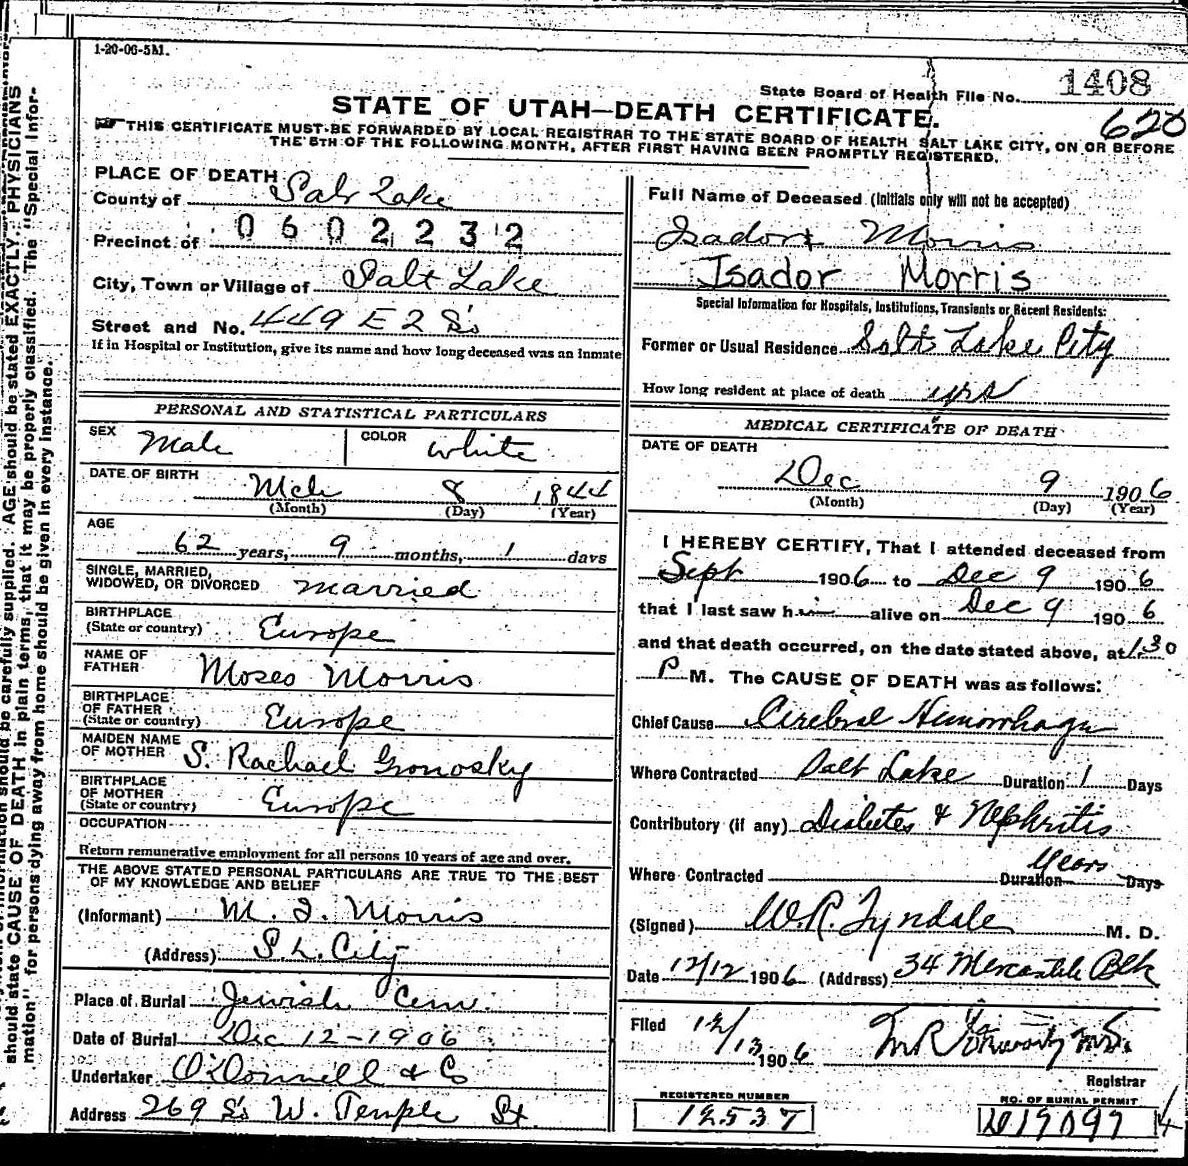 1-20-06-5M.
State Board of Health File No. 1408
620
STATE OF UTAH—DEATH CERTIFICATE.
THIS CERTIFICATE MUST BE FORWARDED BY LOCAL REGISTRAR TO THE STATE BOARD OF HEALTH SALT LAKE CITY, ON OR BEFORE
THE 5TH OF THE FOLLOWING MONTH, AFTER FIRST HAVING BEEN PROMPTLY REGISTERED.
PLACE OF DEATH
County of Salt Lake
Precinct of 0602232
City, Town or Village of Salt Lake
Street and No. 449 E 2 So
If in Hospital or Institution, give its name and how long deceased was an inmate
PERSONAL AND STATISTICAL PARTICULARS
SEX Male COLOR White
DATE OF BIRTH Mch 8 1844
(Month) (Day) (Year)
AGE
62 years, 9 months, 1 days
SINGLE, MARRIED,
WIDOWED, OR DIVORCED Married
BIRTHPLACE
(State or country) Europe
NAME OF
FATHER Moses Morris
BIRTHPLACE
OF FATHER
(State or country) Europe
MAIDEN NAME
OF MOTHER S. Rachael Gronosky
BIRTHPLACE
OF MOTHER
(State or country) Europe
OCCUPATION
Return remunerative employment for all persons 10 years of age and over.
THE ABOVE STATED PERSONAL PARTICULARS ARE TRUE TO THE BEST
OF MY KNOWLEDGE AND BELIEF
(Informant) M. I. Morris
(Address) S. L. City
Place of Burial Jewish Cem.
Date of Burial Dec 12-1906
Undertaker O'Donnell & Co
Address 269 So W. Temple St.
Full Name of Deceased (Initials only will not be accepted)
Isadore Morris
Isador Morris
Special Information for Hospitals, Institutions, Transients or Recent Residents:
Former or Usual Residence Salt Lake City
How long resident at place of death yrs
MEDICAL CERTIFICATE OF DEATH
DATE OF DEATH
Dec 9 1906
(Month) (Day) (Year)
I HEREBY CERTIFY, That I attended deceased from
Sept 1906 to Dec 9 1906
that I last saw him alive on Dec 9 1906
and that death occurred, on the date stated above, at 1.30
P M. The CAUSE OF DEATH was as follows:
Chief Cause Cerebral Hemorrhage
Where Contracted Salt Lake Duration 1 Days
Contributory (if any) Diabetes & Nephritis
Years
Where Contracted Duration Days
(Signed) W.R. Tyndale M. D.
Date 12/12 1906 (Address) 34 Mercantile Blk
Filed 12/13 1906
Registrar
REGISTERED NUMBER
12537
NO. OF BURIAL PERMIT
D17097
should state CAUSE OF DEATH in plain terms, that it may be properly classified. The "Special Infor-
mation" for persons dying away from home should be given in every instance.